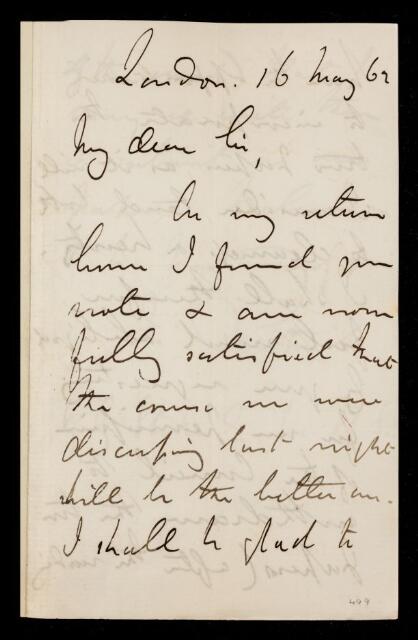 London. 16 May 62
My dear Sir,
On my return
home I found your
note & am now
fully satisfied that
the course we were
discussing last night
will be the better one.
I shall be glad to
499